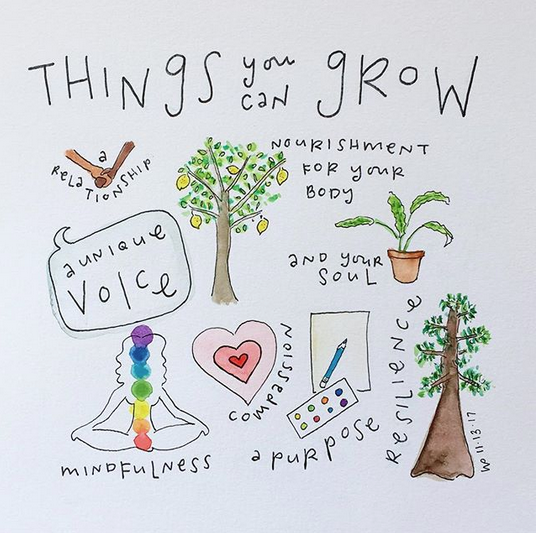 THINGS you can grow
a RELATIONSHIP
NOURISHMENT
FOR YOUR
BODY
AND YOUR
SOUL
a UNIQUE
VOICE
COMPASSION
MINDFULNESS
a purpose
RESILIENCE
11·13·17